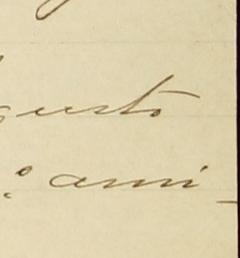 gusto
: ami-